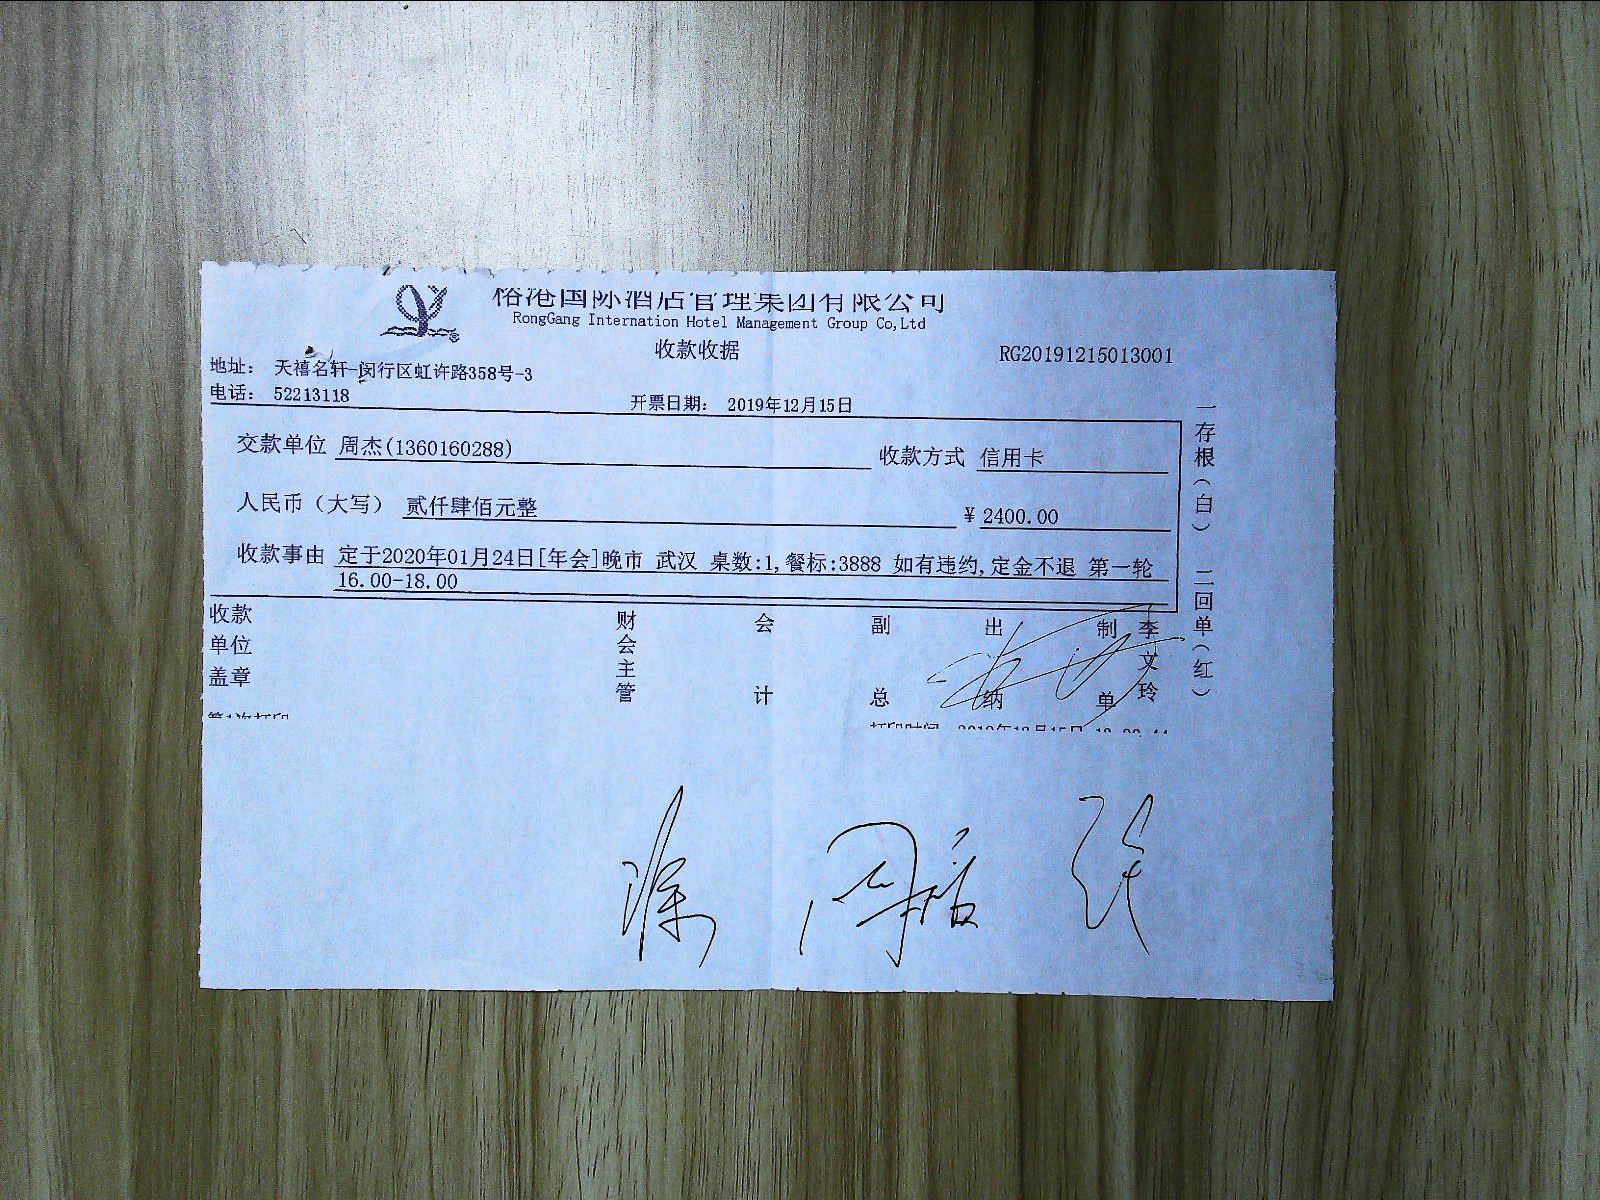 榕港国际酒店管理集团有限公司
RongGang Internation Hotel Management Group Co,Ltd
收款收据
RG20191215013001
地址： 天禧名轩-闵行区虹许路358号-3
电话： 52213118
开票日期： 2019年12月15日
交款单位 周杰(1360160288) 收款方式 信用卡
人民币（大写） 贰仟肆佰元整 ￥2400.00
收款事由 定于2020年01月24日[年会]晚市 武汉 桌数:1,餐标:3888 如有违约,定金不退 第一轮
16.00-18.00
收款单位盖章
财会主管
会计
副总
出纳
制单
李文玲
一存根（白） 二回单（红）
第1次打印
打印时间 2019年12月15日